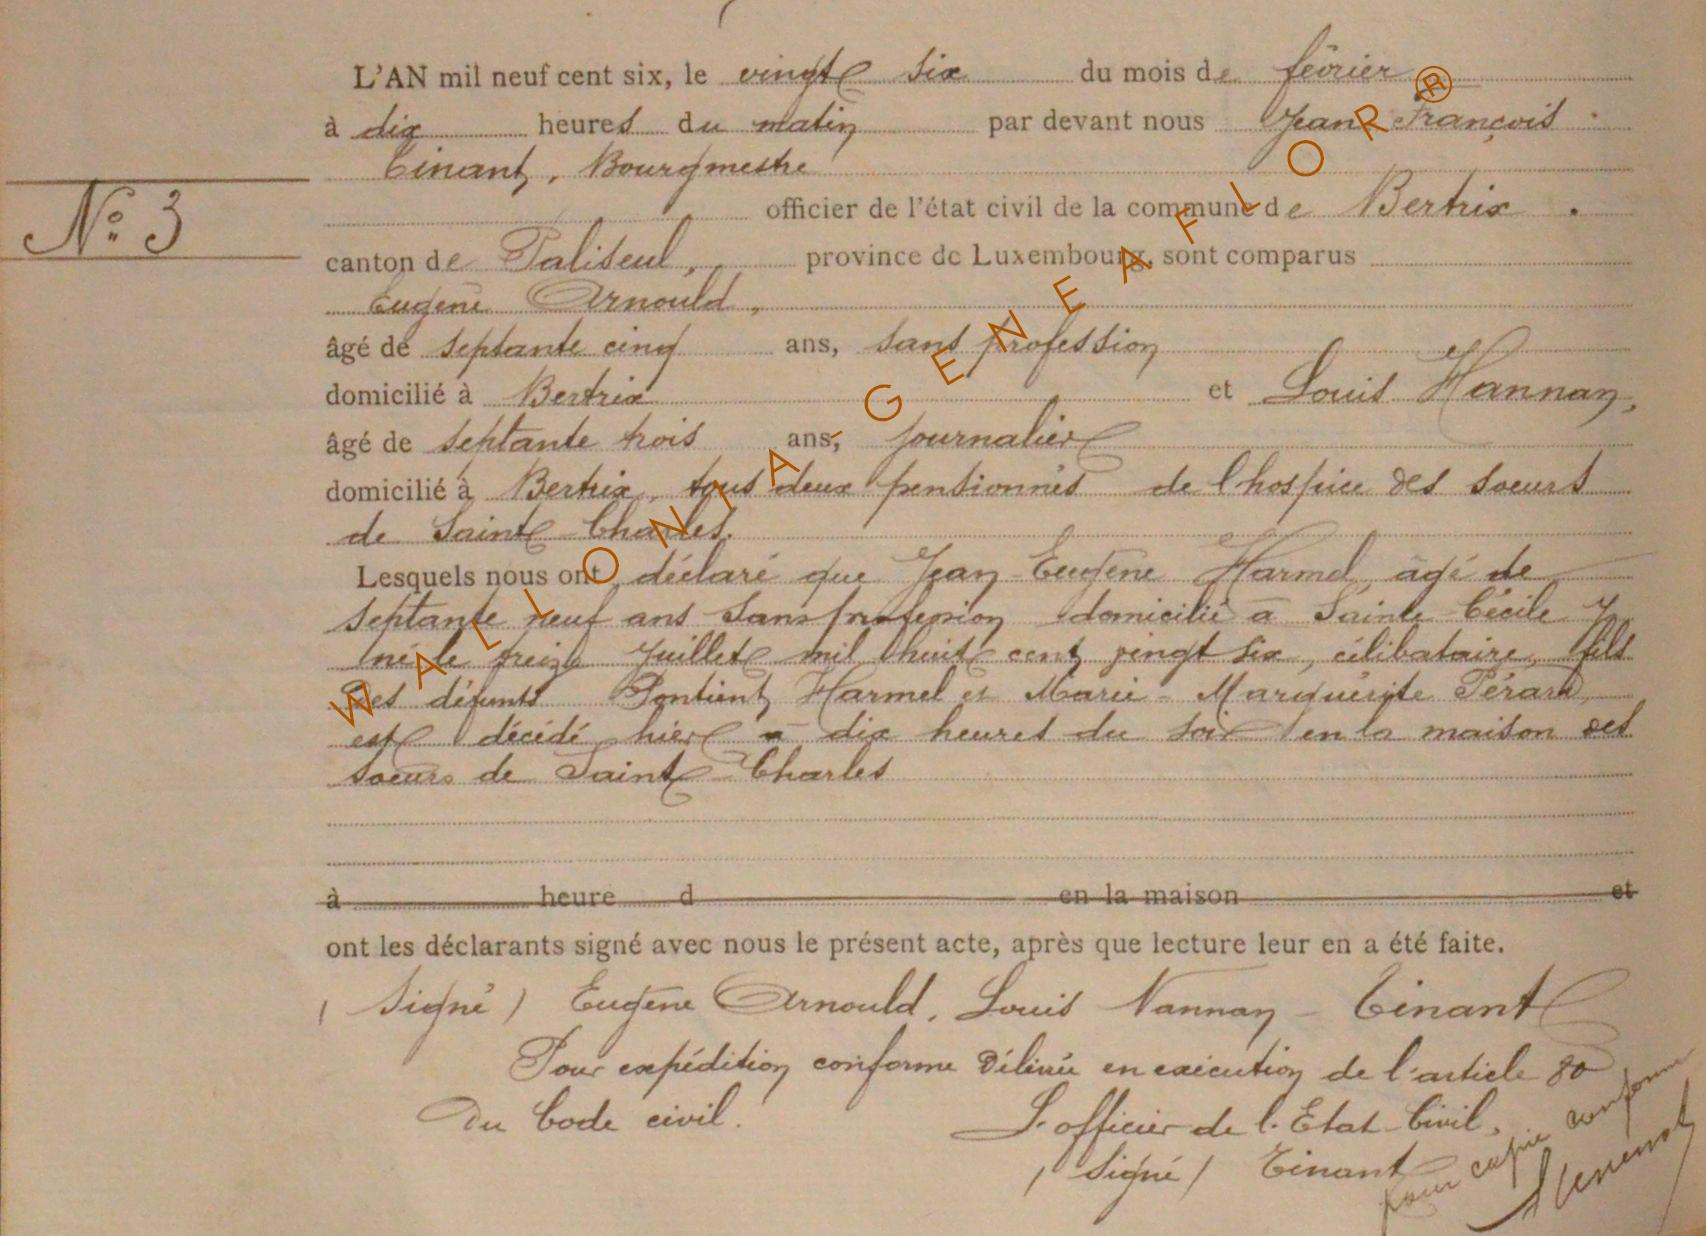 L'AN mil neuf cent six, le vingt six du mois de février
à dix heures du matin par devant nous Jean François
Tinant, Bourgmestre
officier de l'état civil de la commune de Bertrix.
N° 3
canton de Paliseul, province de Luxembourg, sont comparus
Eugène Arnould,
âgé de septante cinq ans, sans profession
domicilié à Bertrix et Louis Hannay,
âgé de septante trois ans, journalier
domicilié à Bertrix, tous deux pensionnés de l'hospice des soeurs
de Saint Charles.
Lesquels nous ont déclaré que Jean Eugène Harmel, âgé de
septante neuf ans sans profession domicilié à Sainte Cécile y
né le treize Juillet mil huit cent vingt six, célibataire, fils
des défunts Pontient Harmel et Marie-Marguerite Pérard
est décédé hier à dix heures du soir en la maison des
soeurs de Saint Charles
à heure d en la maison et
ont les déclarants signé avec nous le présent acte, après que lecture leur en a été faite.
(Signé) Eugène Arnould, Louis Nannay - Tinant
Pour expédition conforme délivrée en exécution de l'article 80
du Code civil. L'officier de l'Etat-Civil,
(Signé) Tinant
pour copie conforme
WALLONIA-GENEAFLOR®